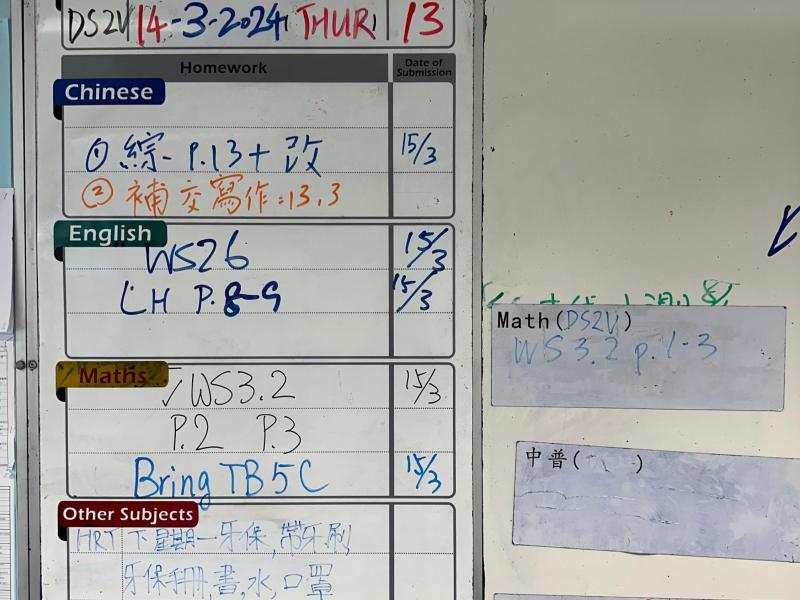 DS2V 14-3-2024 THUR 13
Homework Date of Submission
Chinese
① 綜- P.13 + 改 15/3
② 補交寫作:13.3
English
WS26 15/3
LH P.8-9 15/3
Maths
✓WS3.2 15/3
P.2 P.3
Bring TB 5C 15/3
Other Subjects
HRT 下星期一牙保,帶牙刷,
牙保手冊,書,水,口罩
Math(DS2V)
WS 3.2 p.1-3
中普( )